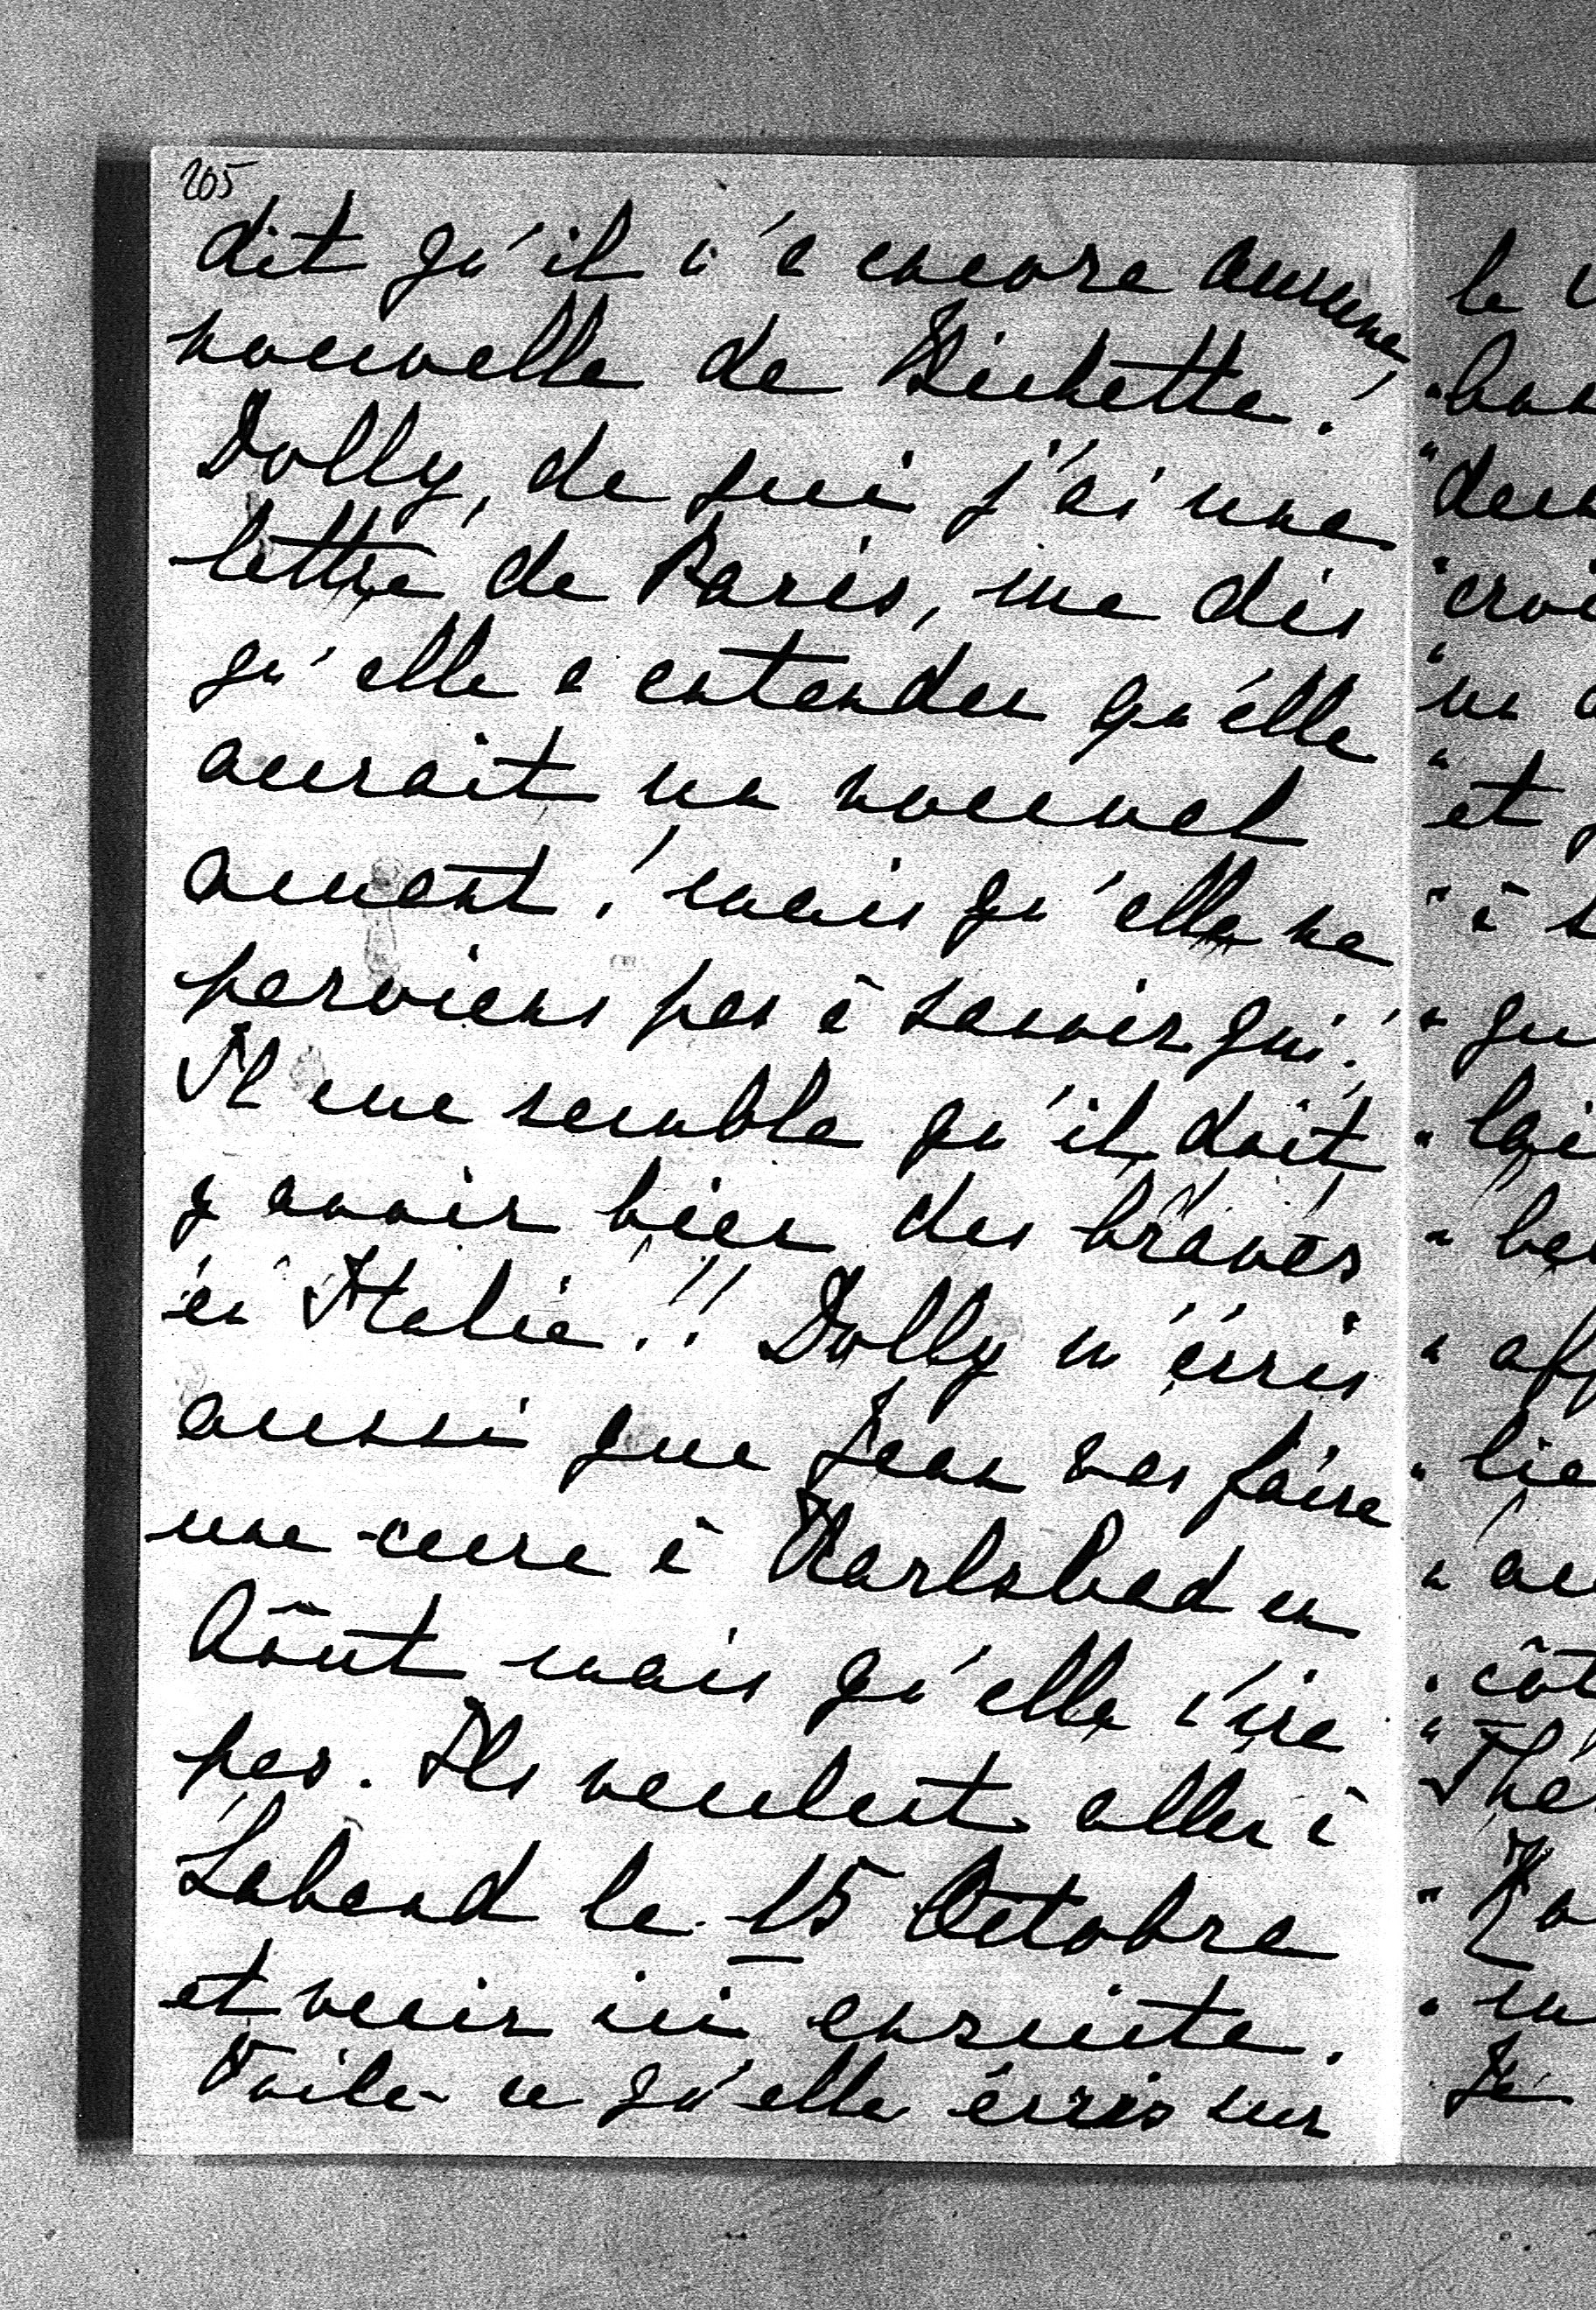 205
dit qu'il n'a encore aucune
nouvelle de Bichette!
Dolly, de qui j'ai une
lettre de Paris, me dis
qu'elle a entendu qu'elle
aurait un nouvel
amant! mais qu'elle ne
parviens pas à savoir qui!
Il me semble qu'il doit
y avoir bien des braves
en Italie!! Dolly m'écris
aussi que Jean vas faire
une cure à Karlsbad en
Août mais qu'elle n'ira
pas. Ils veulent aller à
Labend le 15 Octobre
et venir ici ensuite.
Voila ce qu'elle écris sur
le
"
" deu
" croi
" ne
" et
" à s
" qu
" lai
" be
" aff
" lie
" au
" côt
" Thé
"
"
Je